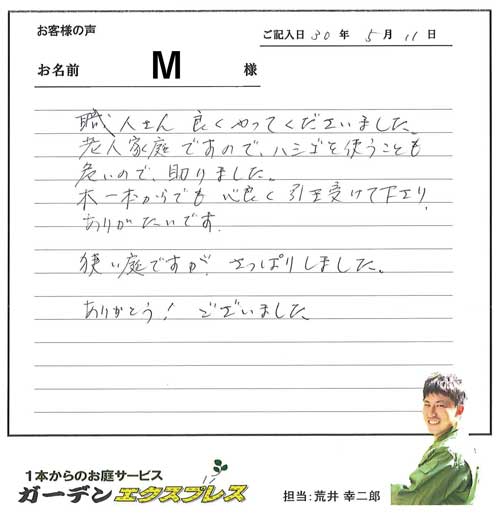 お客様の声
ご記入日 30 年 5 月 11 日
お名前 M 様
職人さん 良くやってくださいました。
老人家庭ですので、ハシゴを使うことも
危いので、助りました。
木一本からでも 心良く引き受けて下さり、
ありがたいです。
狭い庭ですが さっぱりしました。
ありがとう！ ございました
1本からのお庭サービス
ガーデンエクスプレス
担当：荒井 幸二郎